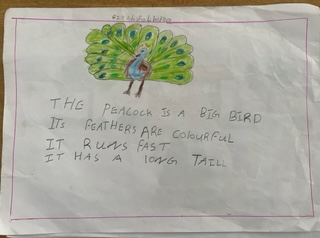 THE PEACOCK IS A BIG BIRD
ITS FEATHERS ARE COLOURFUL
IT RUNS FAST
IT HAS A LONG TAILL